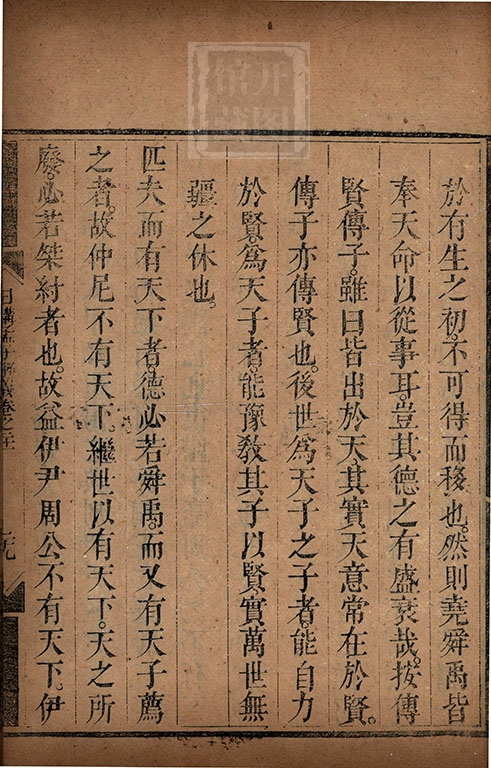 於有生之初。不可得而移也。然則堯舜禹皆
奉天命以從事耳。豈其德之有盛衰哉。按傳
賢傳子。雖曰皆出於天。其實天意常在於賢。
傳子亦傳賢也。後世爲天子之子者。能自力
於賢。爲天子者。能豫教其子以賢。實萬世無
疆之休也。
匹夫而有天下者。德必若舜禹。而又有天子薦
之者。故仲尼不有天下。繼世以有天下。天之所
廢。必若桀紂者也。故益伊尹周公不有天下。伊
日講孟子解義卷之